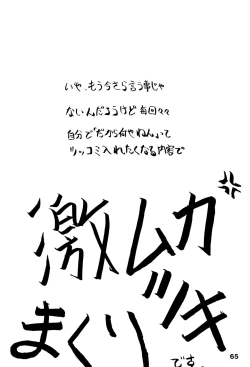 いや、もう今さら言う事じゃ
ないんだろうけど毎回々々
自分で「だから何やねん」て
ツッコミ入れたくなる内容で
激ムカ
ツキ
まくり
です。
65